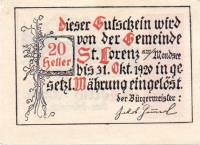 dieser Gutschein wird
von der Gemeinde
20 Heller
St. Lorenz am/Mondsee
bis 31. Okt. 1920 in ge
setzl. Währung eingelöst.
der Bürgermeister: